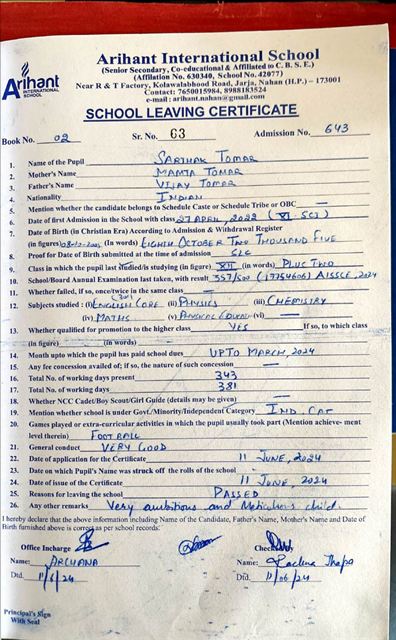 Arihant
INTERNATIONAL
SCHOOL
Arihant International School
(Senior Secondary, Co-educational & Affiliated to C. B. S. E.)
(Affilation No. 630340, School No. 42077)
Near R & T Factory, Kolawalabhood Road, Jarja, Nahan (H.P.) - 173001
Contact: 7650015984, 8988183524
e-mail : arihant.nahan@gmail.com
SCHOOL LEAVING CERTIFICATE
Book No. 02 Sr. No. 63 Admission No. 643
1. Name of the Pupil SARTHAK TOMAR
2. Mother's Name MAMTA TOMAR
3. Father's Name VIJAY TOMAR
4. Nationality INDIAN
5. Mention whether the candidate belongs to Schedule Caste or Schedule Tribe or OBC —
6. Date of first Admission in the School with class 27 APRIL, 2022 (XI-SCI)
7. Date of Birth (in Christian Era) According to Admission & Withdrawal Register
(in figures) (In words) EIGHTH OCTOBER TWO THOUSAND FIVE
8. Proof for Date of Birth submitted at the time of admission SLC
9. Class in which the pupil last studied/is studying (in figure) XII (in words) PLUS TWO
10. School/Board Annual Examination last taken, with result 357/500 (17754606) AISSCE, 2024
11. Whether failed, if so, once/twice in the same class —
12. Subjects studied : (i) ENGLISH CORE (301) (ii) PHYSICS (iii) CHEMISTRY
(iv) MATHS (v) PHYSICAL (vi) —
13. Whether qualified for promotion to the higher class YES If so, to which class
(in figure) (in words) —
14. Month upto which the pupil has paid school dues UPTO MARCH, 2024
15. Any fee concession availed of; if so, the nature of such concession —
16. Total No. of working days present 343
17. Total No. of working days 381
18. Whether NCC Cadet/Boy Scout/Girl Guide (details may be given) —
19. Mention whether school is under Govt./Minority/Independent Category IND. CAT
20. Games played or extra-curricular activities in which the pupil usually took part (Mention achieve- ment
level therein) FOOTBALL
21. General conduct VERY GOOD
22. Date of application for the Certificate 11 JUNE, 2024
23. Date on which Pupil's Name was struck off the rolls of the school —
24. Date of issue of the Certificate 11 JUNE, 2024
25. Reasons for leaving the school PASSED
26. Any other remarks Very ambitious and Meticulous child.
I hereby declare that the above information including Name of the Candidate, Father's Name, Mother's Name and Date of
Birth furnished above is correct as per school records:
Office Incharge Checked by
Name: ARCHANA Name: Rachna Thapa
Dtd. 11/6/24 Dtd. 11/06/24
Principal's Sign
With Seal